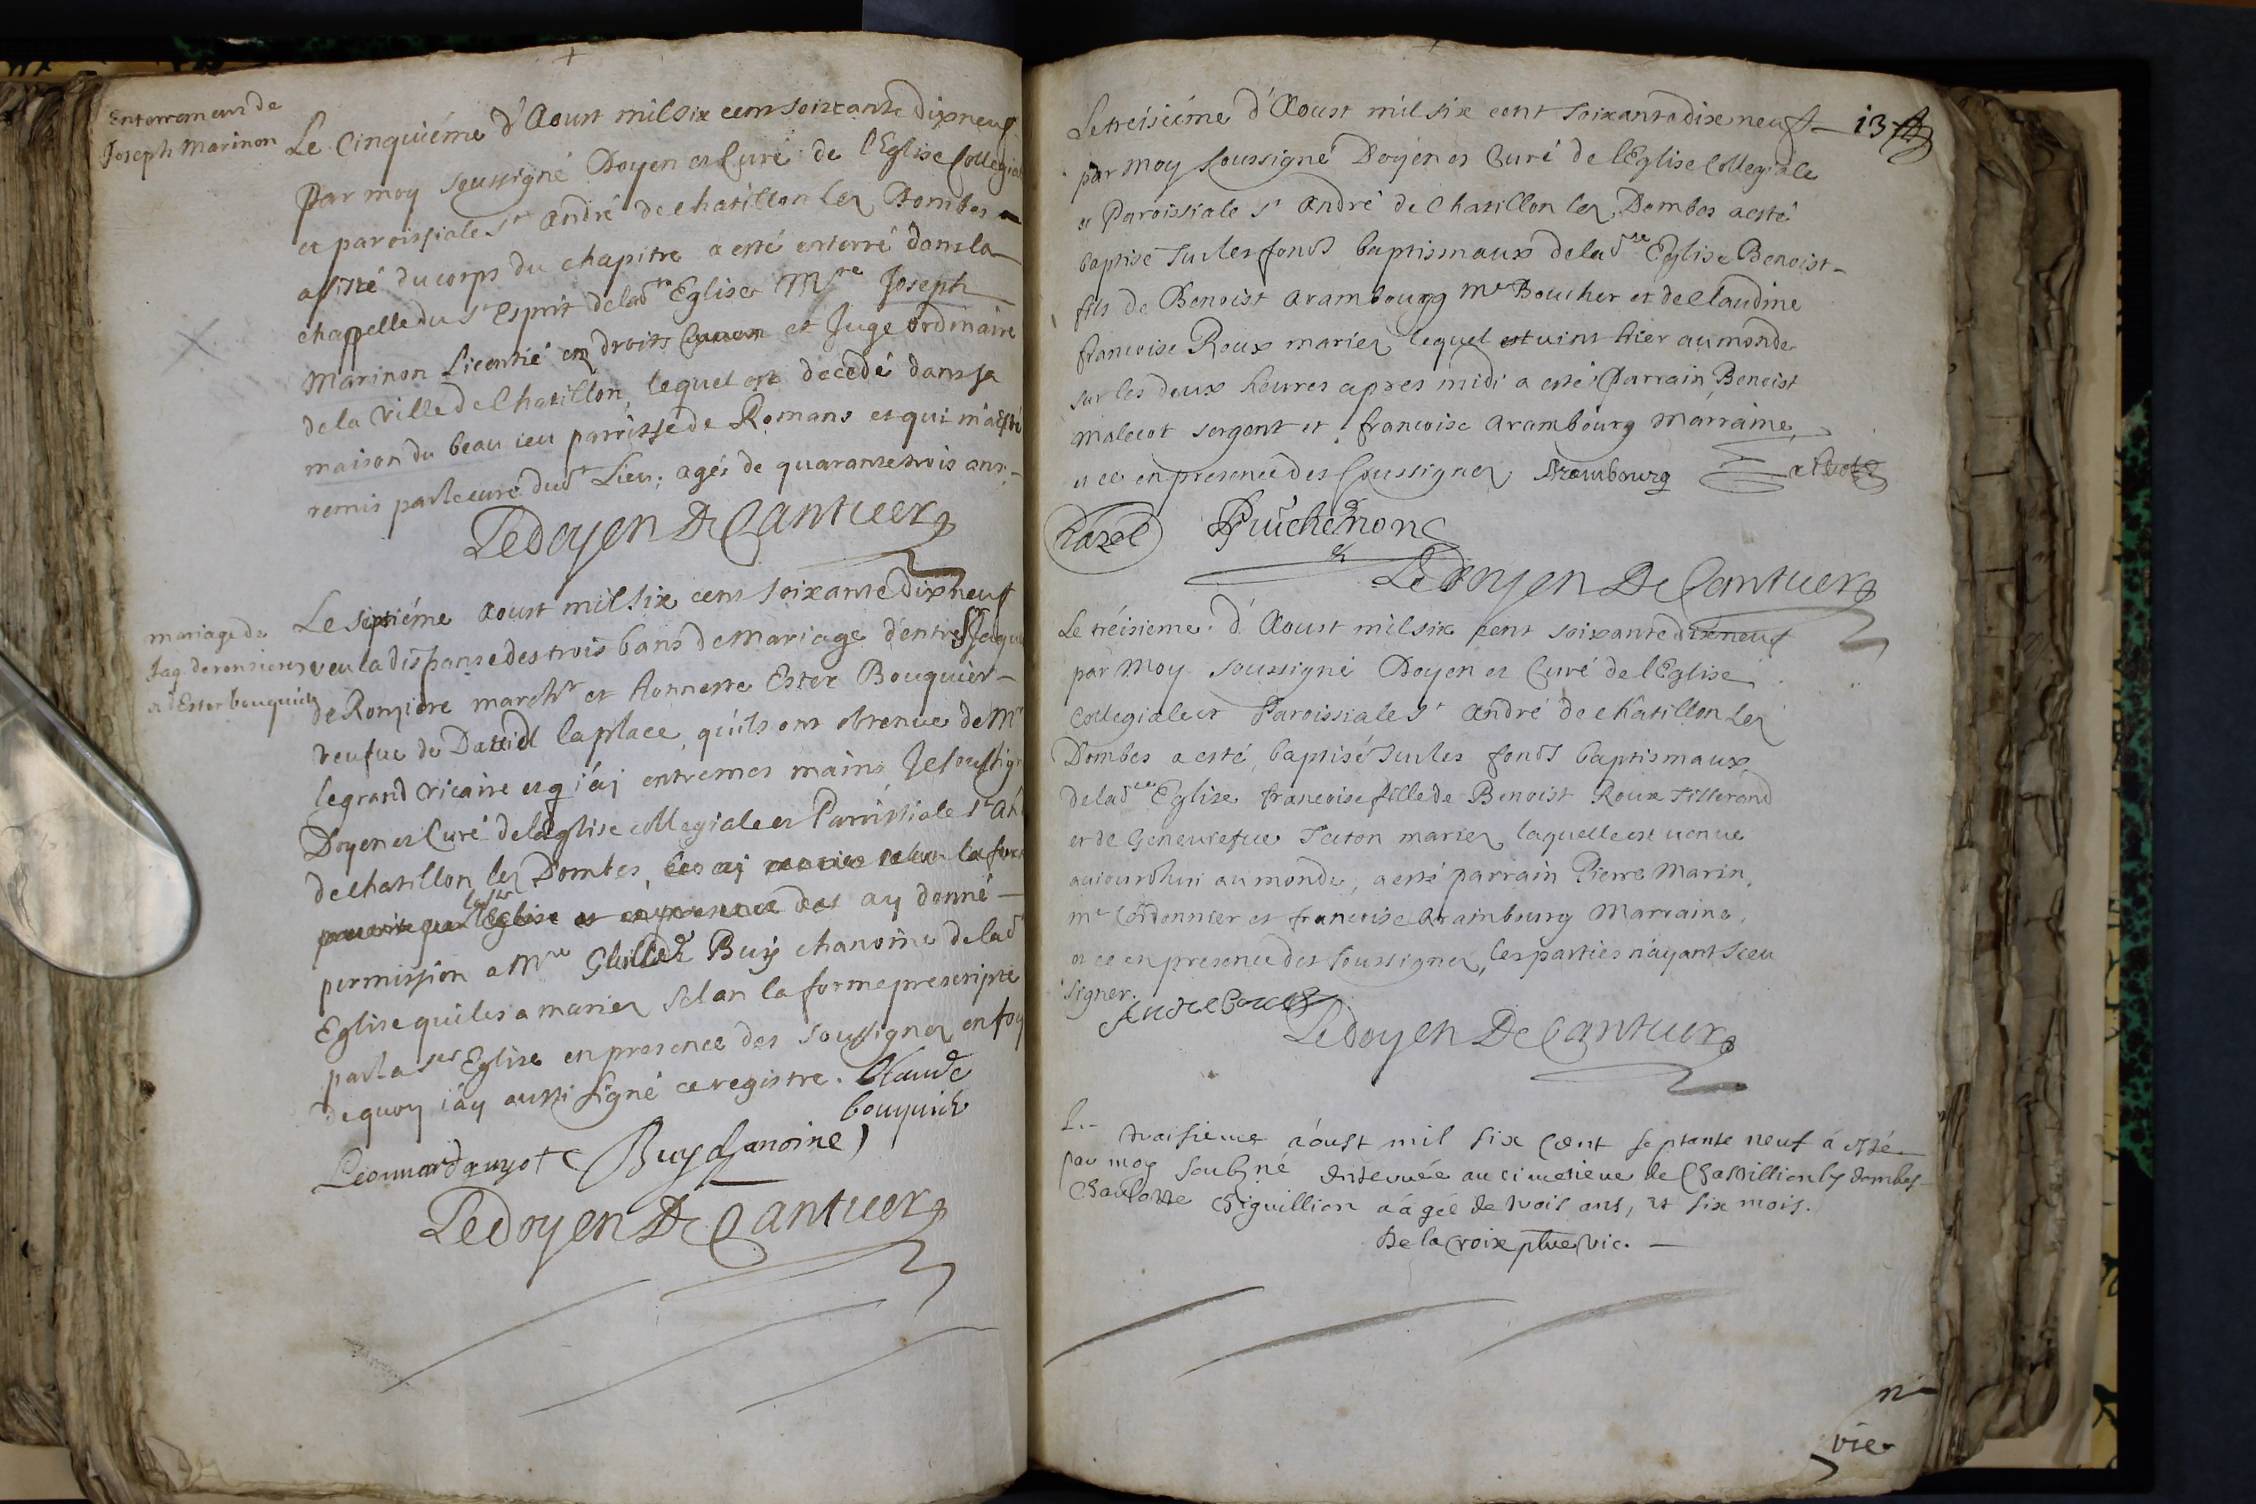 Enterrement de
Joseph Marinon
Le Cinquiéme d'Aoust mil six cens soixante dixneuf
Par moy soussigné Doyen et Curé de l'Eglise Collegial
et paroissiale St André de chatillon lez Dombes
assisté du corps du chapitre a esté enterré dans la
chappelle du St Esprit de lad te Eglise Mre Joseph
Marinon Licentié en droits et Juge ordinaire
de la ville de Chatillon, lequel est decedé dans sa
maison du beau ieu parrisse de Romans et qui m'a esté
remis par le curé dud t Lieu, agés de quarante trois ans.
Le doyen De Cantuer
mariage de
Jaq. deronsieres
et Ester bouquier
Le septiéme Aoust mil six cens soixante dixneuf
veu la dispanse des trois bans de Mariage d'entre Sr Jaque
de Ronziere march t et honneste Ester Bouquier
veufue de Dauid laplace, qu'ils ont obtenue de Mr
le grand vicaire et q i'ay entre mes mains Je soussigné
Doyen et Curé de l'Eglise collegiale et Parrissiale St An
de chatillon lez Dombes, les ay la form
l'Eglise et en presence des ay donné
permission a Mre Buy chanoine de lad
Eglise qui les a mariez selon la forme prescripte
par la ste Eglise en presence des soussignez en foy
de quoy i'ay aussi signé ce registre. Claude
bouquier
Leonnard guyot Buy chanoine
Le doyen De Cantuer
Le treisiéme d'Aoust mil six cent soixante dixe neuf 13
par Moy soussigné Doyen et Curé de l'Eglise Collegiale
et Paroissiale St André de Chatillon lez Dombes a esté
baptisé sur les fonds baptismaux de lad te Eglise Benoist
fils de Benoist Arambourg me Boucher et de Claudine
francoise Roux mariez lequel est uint hier au monde
sur les deux heures apres midi a esté Parrain Benoist
Malecot sergent et francoise Arambourg Marraine,
et ce en presence des soussignez Arambourg
Le doyen De Cantuer
Le tréisieme d'Aoust mil six cent soixante dixneuf
par Moy soussigné Doyen et Curé de l'Eglise
Collegiale et Paroissiale St André de chatillon lez
Dombes a esté baptisé sur les fonds baptismaux
de lad te Eglise francoise fille de Benoist Roux Tisserand
et de Geneuiefue Teton mariez laquelle est uenue
auiourdhui au monde, a esté parrain Pierre Marin,
me Cordonnier et francoise Arambourg Marraine,
et ce en presence des soussignez, les parties n'ayant sceu
signer.
Le doyen De Cantuer
L..
troisieme aoust mil six cent septante neuf à esté
par moy soubzné enterrée au cimetiere de Chastillion les dombes
Charlotte Chiguillion aágée de trois ans, et six mois.
De la Croix ptre vic.
vie